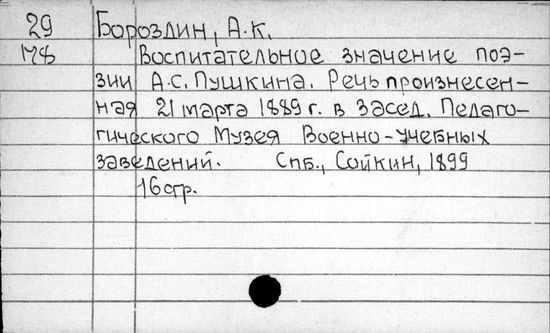 29 Бороздин, А.К.
178 Воспитательное значение поэ-
зии А.С. Пушкина. Речь произнесен-
ная 21 марта 1889 г. в засед. Педаго-
гического Музея Военно-учебных
заведений. Спб., Сойкин, 1899
16 стр.